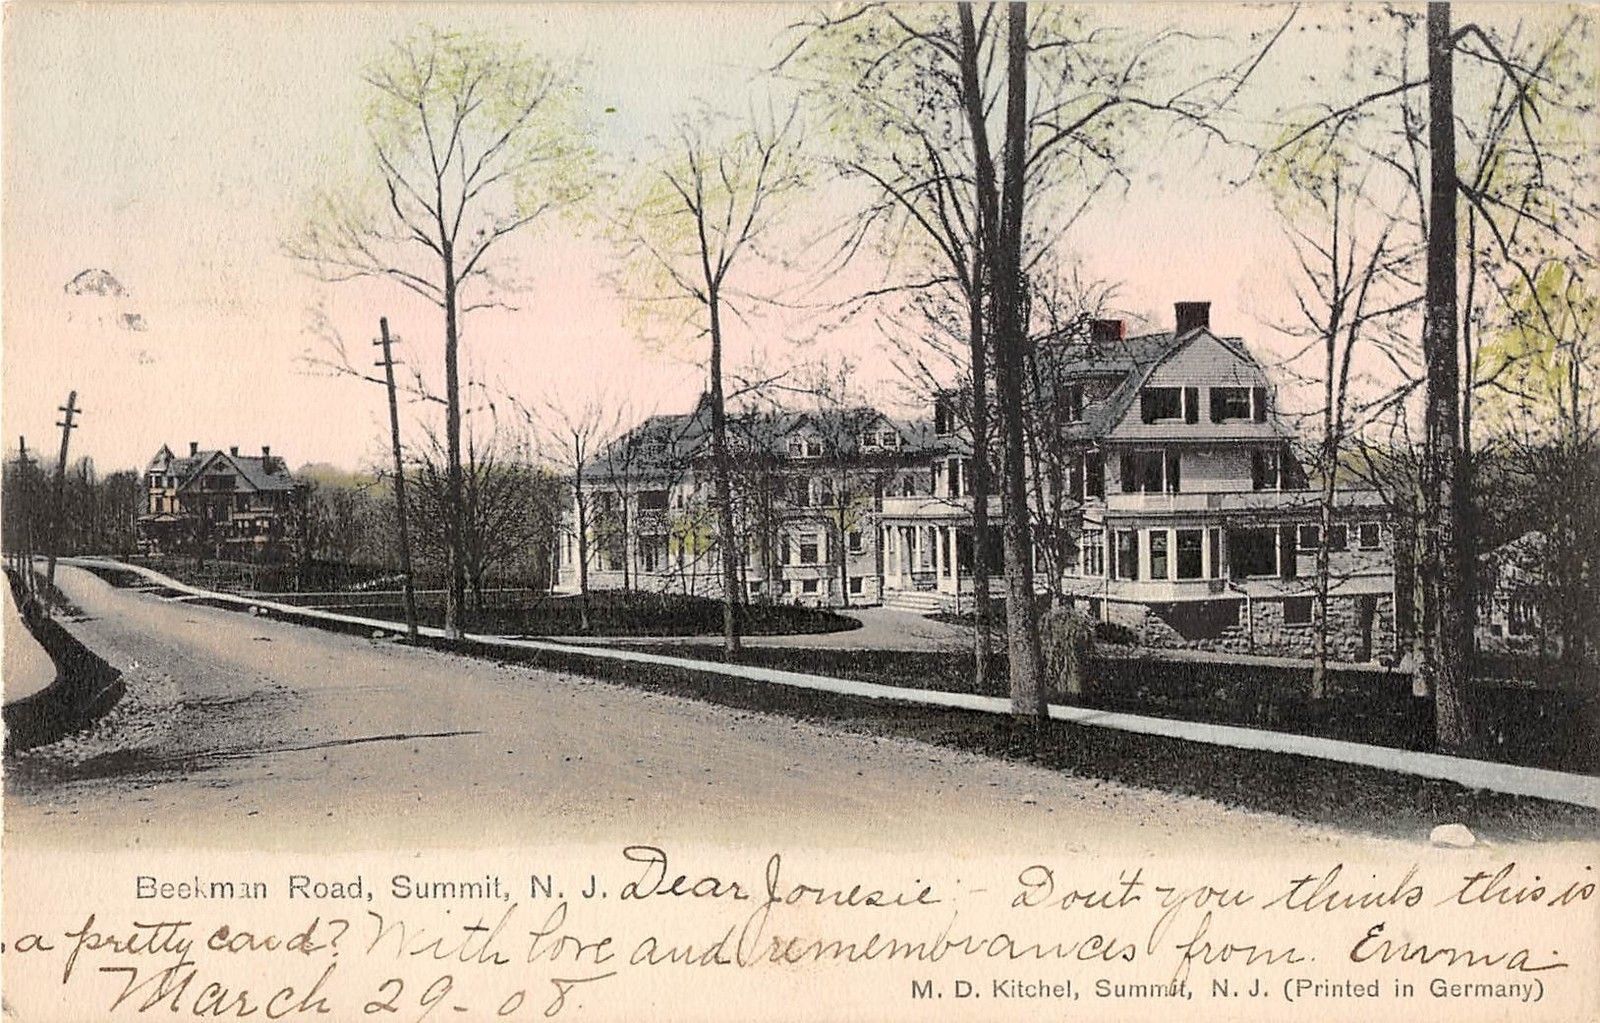 Beekman Road, Summit, N. J. Dear Jonesie:- Don't you think this is
a pretty card? With love and remembrances from. Emma.
March 29-08.
M. D. Kitchel, Summit, N. J. (Printed in Germany)